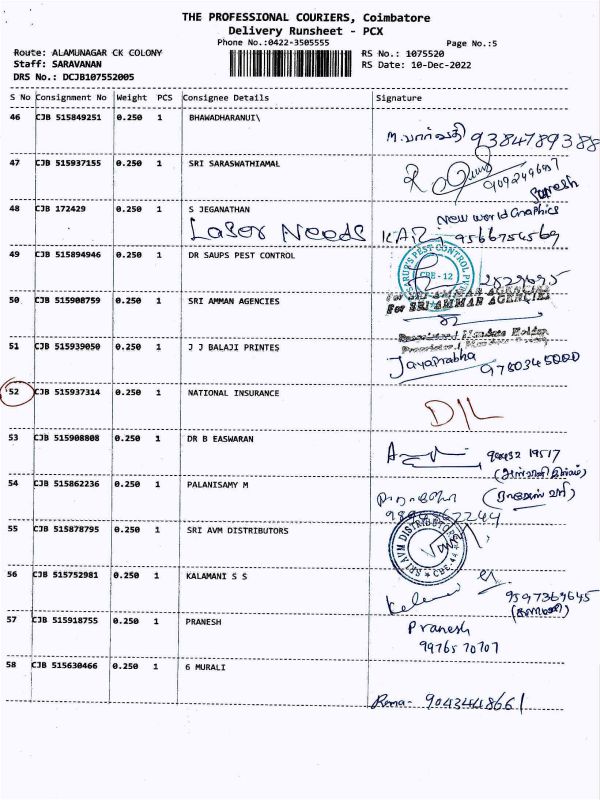 THE PROFESSIONAL COURIERS, Coimbatore
Delivery Runsheet - PCX
Phone No.:0422-3505555
Page No.:5
Route: ALAMUNAGAR CK COLONY
RS No.: 1075520
Staff: SARAVANAN
RS Date: 10-Dec-2022
DRS No.: DCJB107552005
S No Consignment No Weight PCS Consignee Details Signature
46 CJB 515849251 0.250 1 BHAWADHARANUI\
9384789388
47 CJB 515937155 0.250 1 SRI SARASWATHIAMAL
Suresh
48 CJB 172429 0.250 1 S JEGANATHAN
New World Graphics
Laser Needs
9566754569
49 CJB 515894946 0.250 1 DR SAUPS PEST CONTROL
CBE - 12
2529695
50 CJB 515908759 0.250 1 SRI AMMAN AGENCIES
For SRI AMMAN AGENCIES
51 CJB 515939050 0.250 1 J J BALAJI PRINTES
Jayaprabha
52 CJB 515937314 0.250 1 NATIONAL INSURANCE
D/L
53 CJB 515908808 0.250 1 DR B EASWARAN
54 CJB 515862236 0.250 1 PALANISAMY M
55 CJB 515878795 0.250 1 SRI AVM DISTRIBUTORS
SRI AVM DISTRIBUTORS
56 CJB 515752981 0.250 1 KALAMANI S S
9597369645
57 CJB 515918755 0.250 1 PRANESH
Pranesh
99765 70707
58 CJB 515630466 0.250 1 G MURALI
Rema- 9043448661